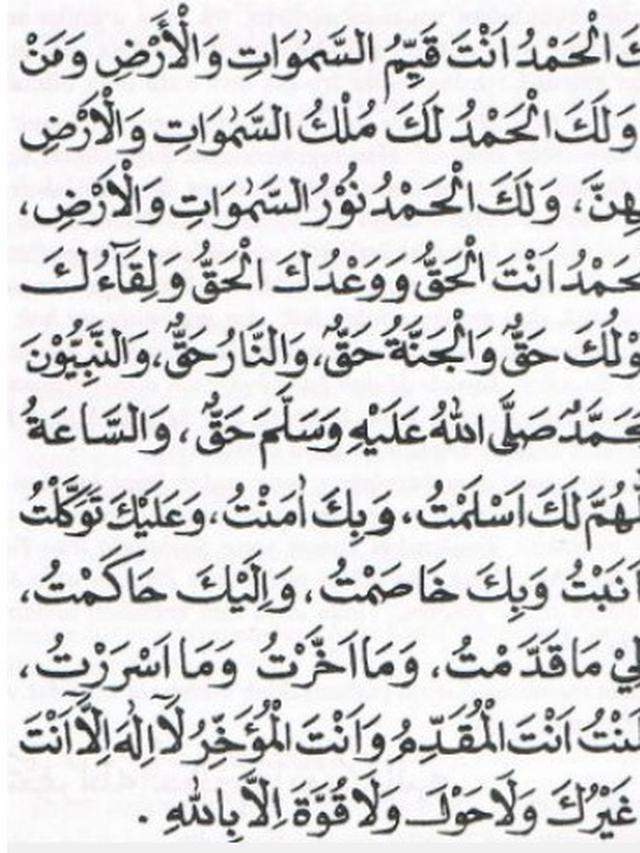 كَ الْحَمْدُ اَنْتَ قَيِّمُ السَّمٰوَاتِ وَالْأَرْضِ وَمَنْ
وَلَكَ الْحَمْدُ لَكَ مُلْكُ السَّمٰوَاتِ وَالْاَرْضِ
هِنَّ، وَلَكَ الْحَمْدُ نُوْرُ السَّمٰوَاتِ وَالْاَرْضِ،
حَمْدُ اَنْتَ الْحَقُّ وَوَعْدُكَ الْحَقُّ وَلِقَآءُكَ
وْلُكَ حَقٌّ وَالْجَنَّةُ حَقٌّ، وَالنَّارُ حَقٌّ، وَالنَّبِيُّوْنَ
حَمَّدٌ صَلَّى اللهُ عَلَيْهِ وَسَلَّمَ حَقٌّ، وَالسَّاعَةُ
لّٰهُمَّ لَكَ اَسْلَمْتُ، وَبِكَ اٰمَنْتُ، وَعَلَيْكَ تَوَكَّلْتُ
اَنَبْتُ وَبِكَ خَاصَمْتُ، وَاِلَيْكَ حَاكَمْتُ،
لِيْ مَا قَدَّمْتُ، وَمَا اَخَّرْتُ وَمَا اَسْرَرْتُ،
لَنْتُ اَنْتَ الْمُقَدِّمُ وَاَنْتَ الْمُؤَخِّرُ لَااِلٰهَ اِلَّا اَنْتَ
غَيْرُكَ وَلَا حَوْلَ وَلَا قُوَّةَ اِلَّا بِاللهِ .